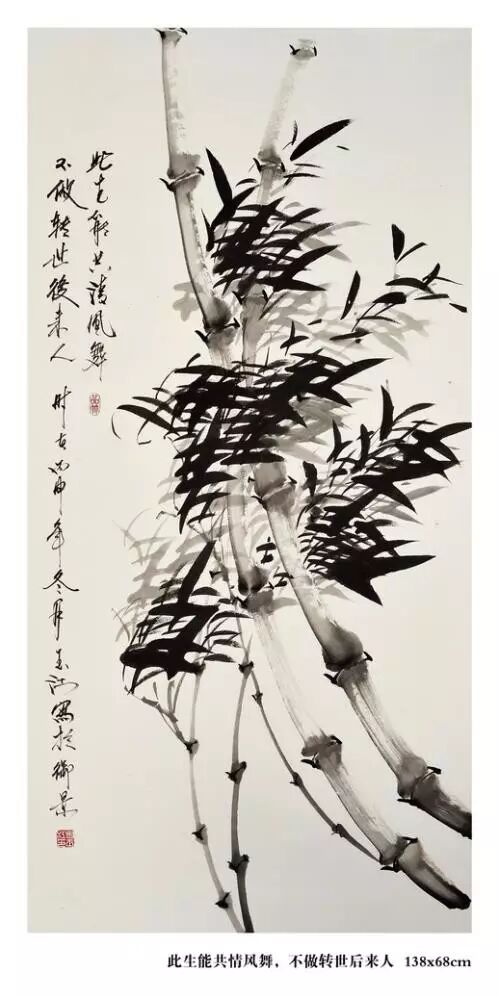 此生能共清風舞
不做转世後来人 时在丙申年冬月玉河寫於御景
此生能共情风舞，不做转世后来人 138x68cm